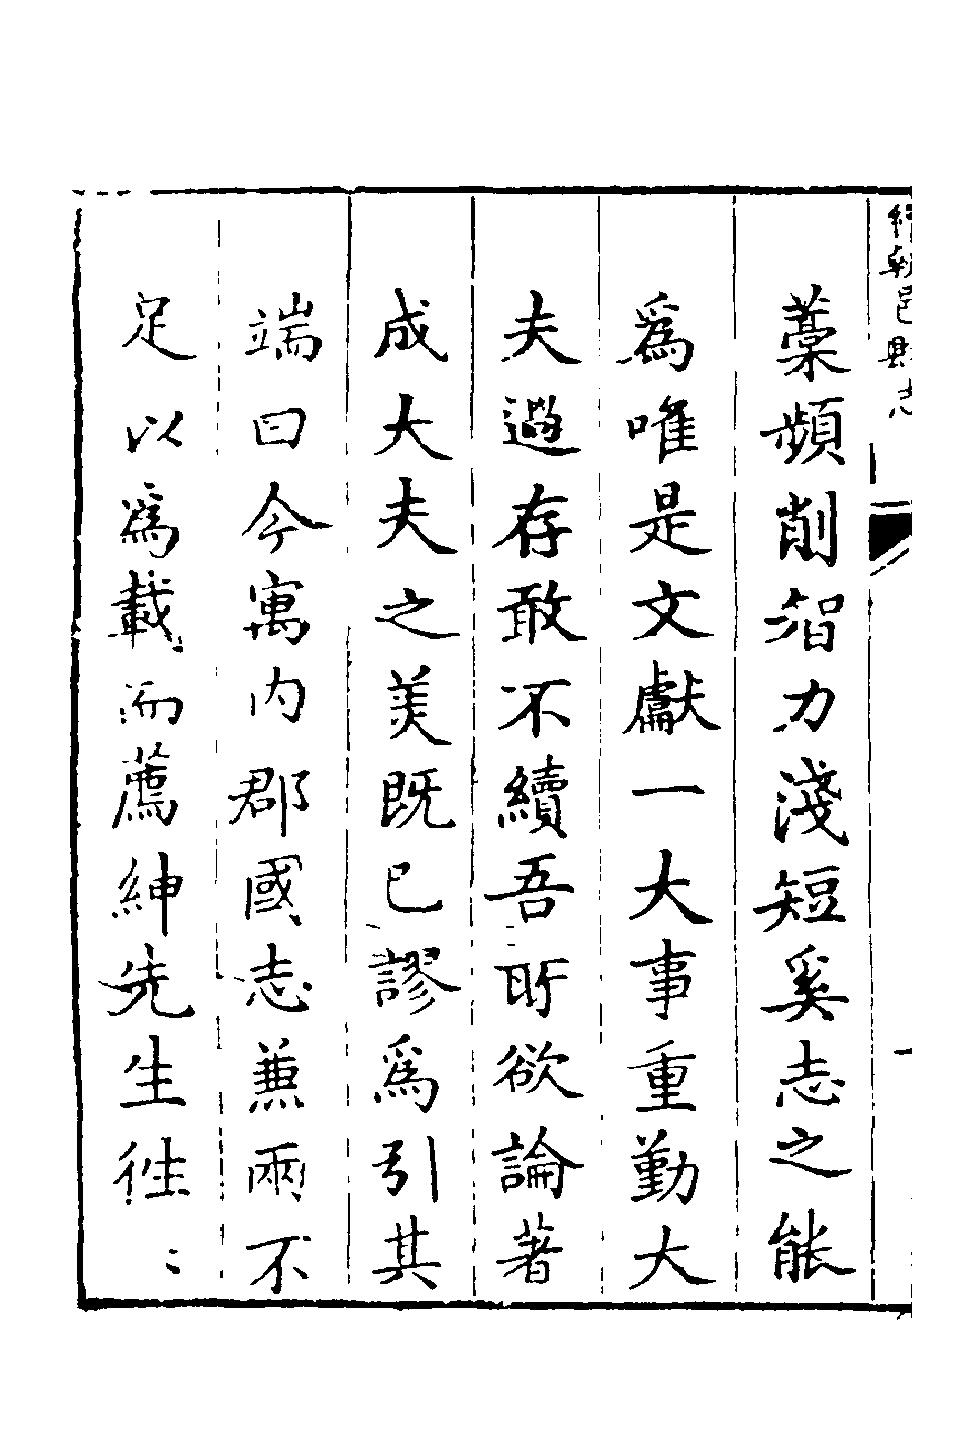 續朝邑縣志
藁頻削智力淺短奚志之能
爲唯是文獻一大事重勤大
夫過存敢不續吾所欲論著
成大夫之美既已謬爲引其
端曰今寓內郡國志兼兩不
足以爲載而薦紳先生往〻